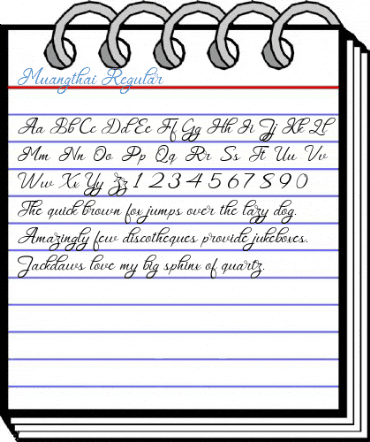 Muangthai Regular
Aa Bb Cc Dd Ee Ff Gg Hh Ii Jj Kk Ll
Mm Nn Oo Pp Qq Rr Ss Tt Uu Vv
Ww Xx Yy Zz 1 2 3 4 5 6 7 8 9 0
The quick brown fox jumps over the lazy dog.
Amazingly few discotheques provide jukeboxes.
Jackdaws love my big sphinx of quartz.